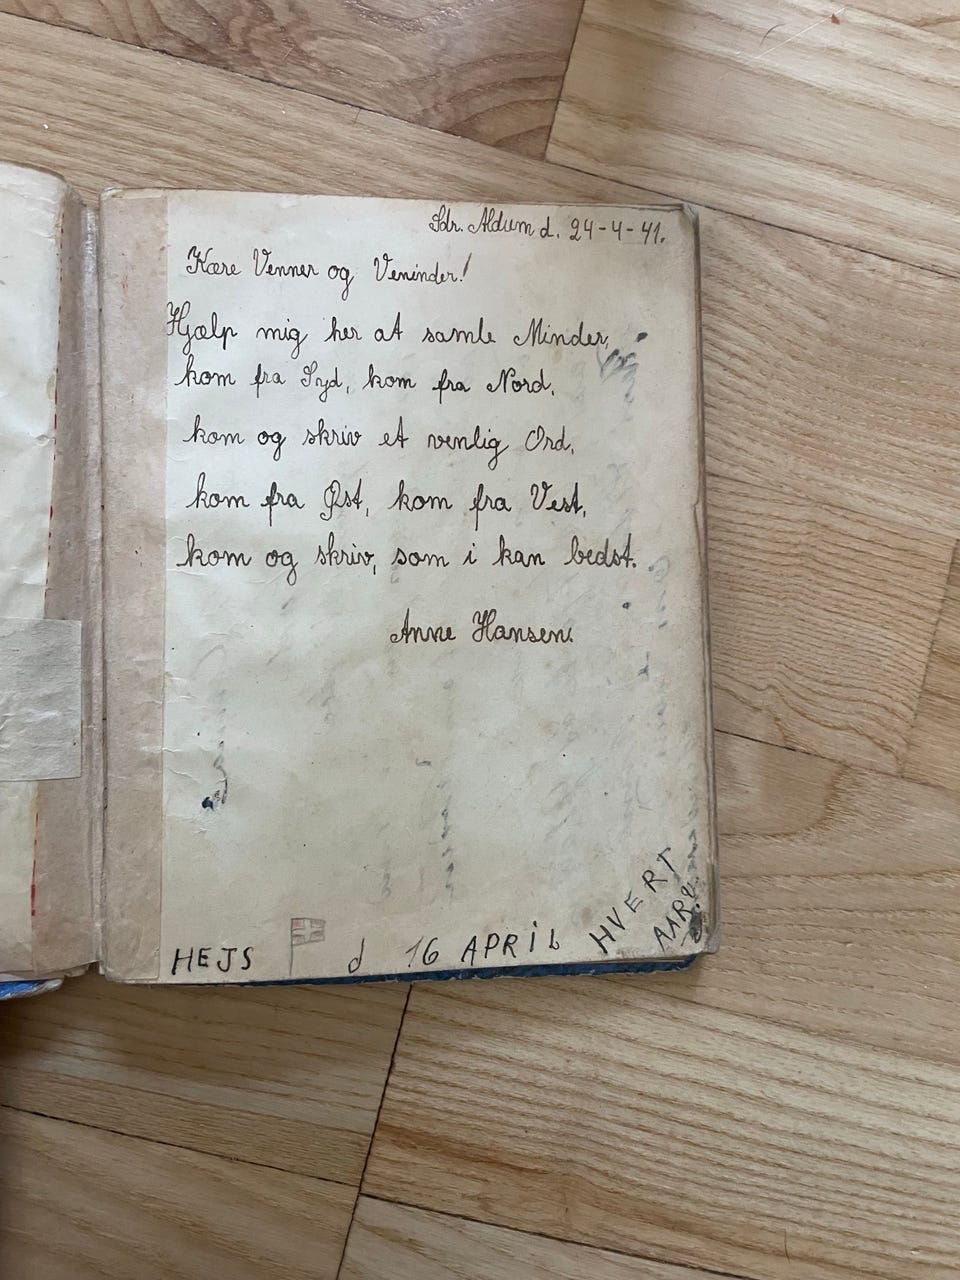 Sdr. Aldum d. 24-4-41.
Kære Venner og Veninder!
Hjælp mig her at samle Minder,
kom fra Syd, kom fra Nord,
kom og skriv et venlig Ord,
kom fra Øst, kom fra Vest,
kom og skriv, som i kan bedst.
Anne Hansen.
HEJS d 16 APRIL HVERT
AAR